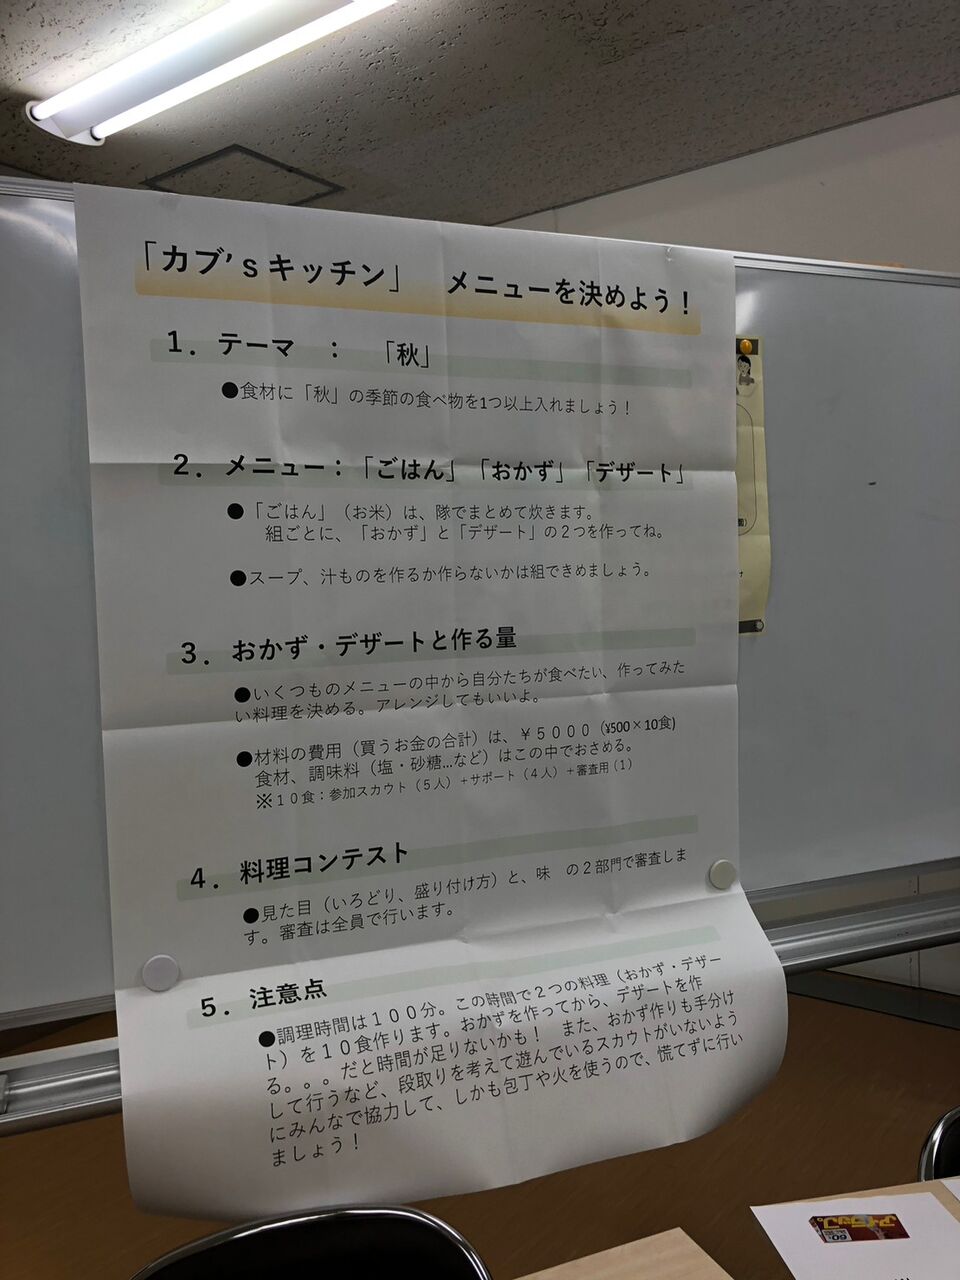 「カブ’ｓキッチン」　メニューを決めよう！
１．テーマ　：　「秋」
●食材に「秋」の季節の食べ物を1つ以上入れましょう！
２．メニュー：「ごはん」「おかず」「デザート」
●「ごはん」（お米）は、隊でまとめて炊きます。
組ごとに、「おかず」と「デザート」の２つを作ってね。
●スープ、汁ものを作るか作らないかは組できめましょう。
３．おかず・デザートと作る量
●いくつものメニューの中から自分たちが食べたい、作ってみた
い料理を決める。アレンジしてもいいよ。
●材料の費用（買うお金の合計）は、￥５０００（¥500×10食)
食材、調味料（塩・砂糖…など）はこの中でおさめる。
※１０食：参加スカウト（５人）+サポート（４人）＋審査用（1）
４．料理コンテスト
●見た目（いろどり、盛り付け方）と、味　の２部門で審査しま
す。審査は全員で行います。
５．注意点
●調理時間は１００分。この時間で２つの料理（おかず・デザー
ト）を１０食作ります。おかずを作ってから、デザートを作
る。。。だと時間が足りないかも！　また、おかず作りも手分け
して行うなど、段取りを考えて遊んでいるスカウトがいないよう
にみんなで協力して、しかも包丁や火を使うので、慌てずに行い
ましょう！
アイラップ。
60